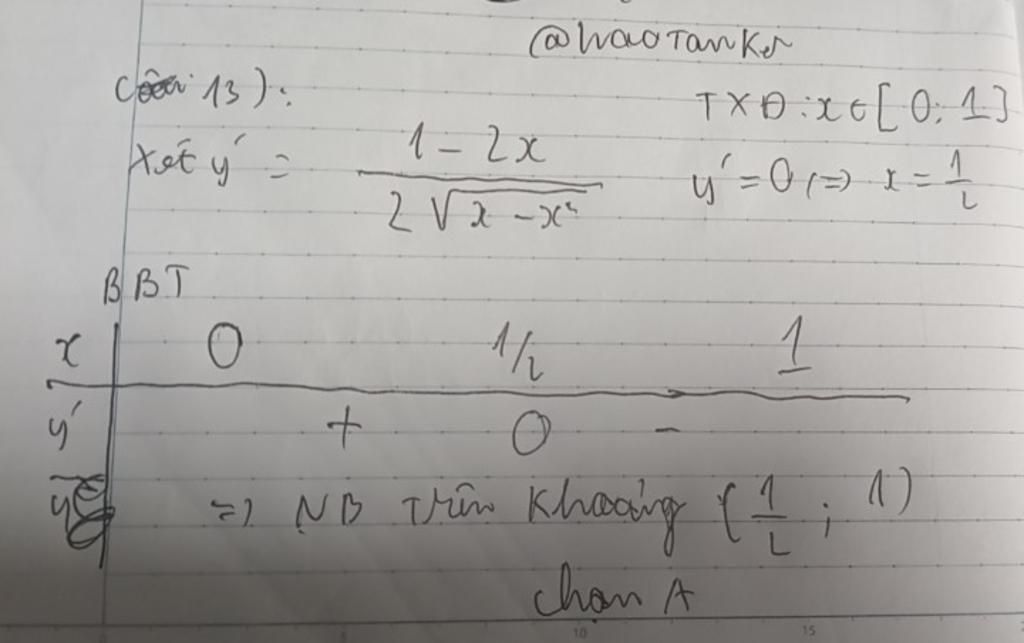 @haoTanker
Câu 13):
TXĐ: x ∈ [0; 1]
Xét y' = \frac{1 - 2x}{2\sqrt{x - x²}}
y' = 0 (=) x = \frac{1}{2}
BBT
x 0 1/2 1
y' + 0 -
y
=) NB trên khoảng (\frac{1}{2}; 1)
chọn A